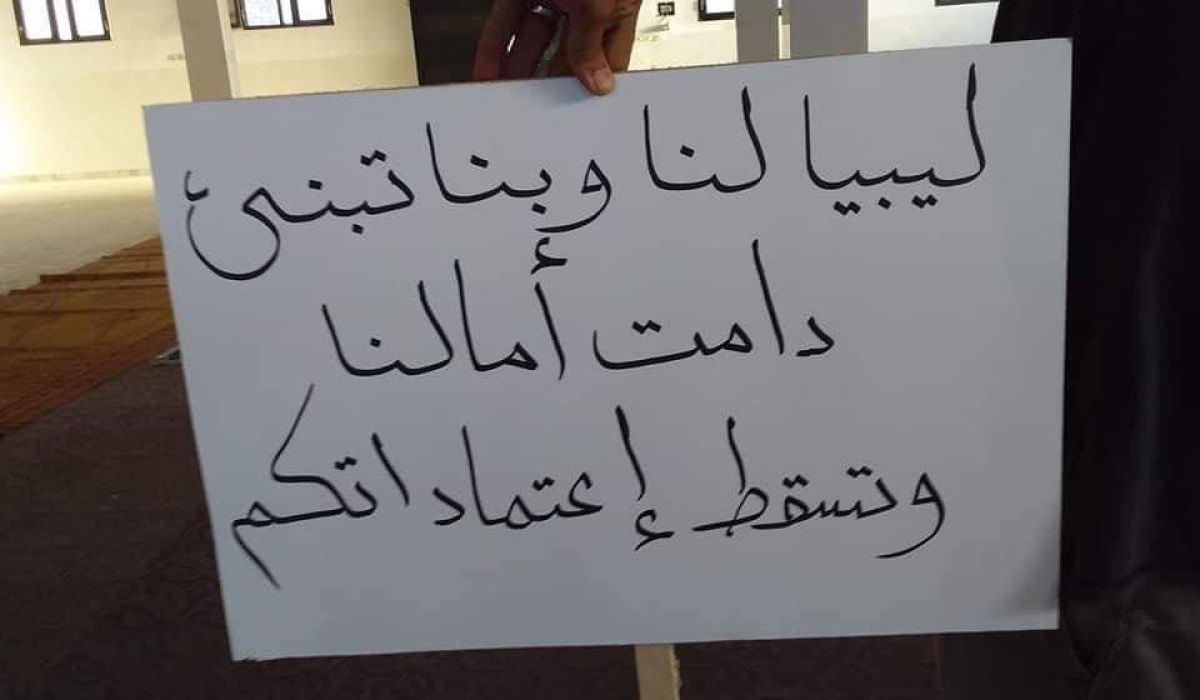 ليبيا لنا وبنا تبنئ
دامت أمالنا
وتسقط إعتماداتكم